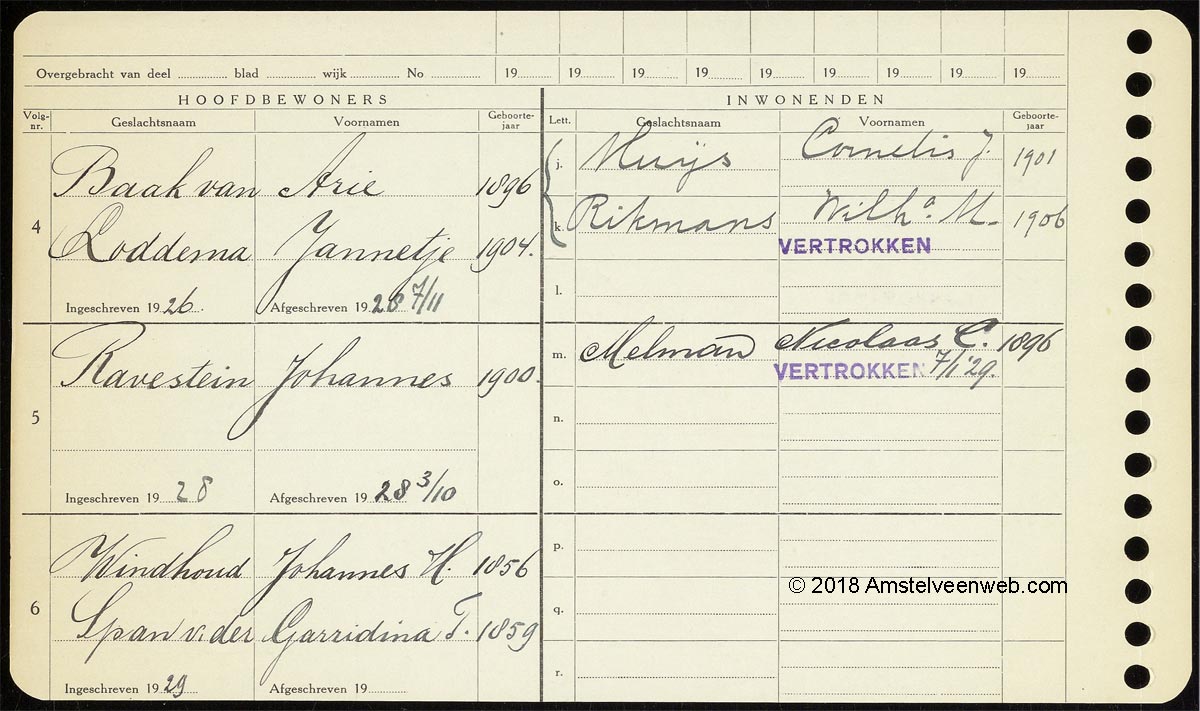 Overgebracht van deel ........ blad ........ wijk ........ No ........ 19 19 19 19 19 19 19 19 19
HOOFDBEWONERS INWONENDEN
Volg-nr. Geslachtsnaam Voornamen Geboorte-jaar Lett. Geslachtsnaam Voornamen Geboorte-jaar
j. Muijs Cornelis J. 1901
4 Baak van Arie 1896
k. Rikmans Wilhª. M. 1906
Loddema Jannetje 1904.
VERTROKKEN
l.
Ingeschreven 1926. Afgeschreven 1928 7/11
m. Melman Nicolaas C. 1896
VERTROKKEN 7/1 '29.
5 Ravestein Johannes 1900.
n.
o.
Ingeschreven 1928 Afgeschreven 1928 3/10
p.
6 Windhoud Johannes H. 1856
© 2018 Amstelveenweb.com
q.
Span v. der Garridina T. 1859
r.
Ingeschreven 1929 Afgeschreven 19